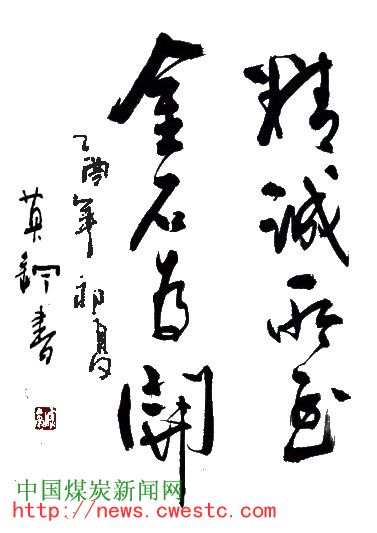 精诚所至
金石为開
乙酉年初夏
英
書
中国煤炭新闻网
http://news.cwestc.com